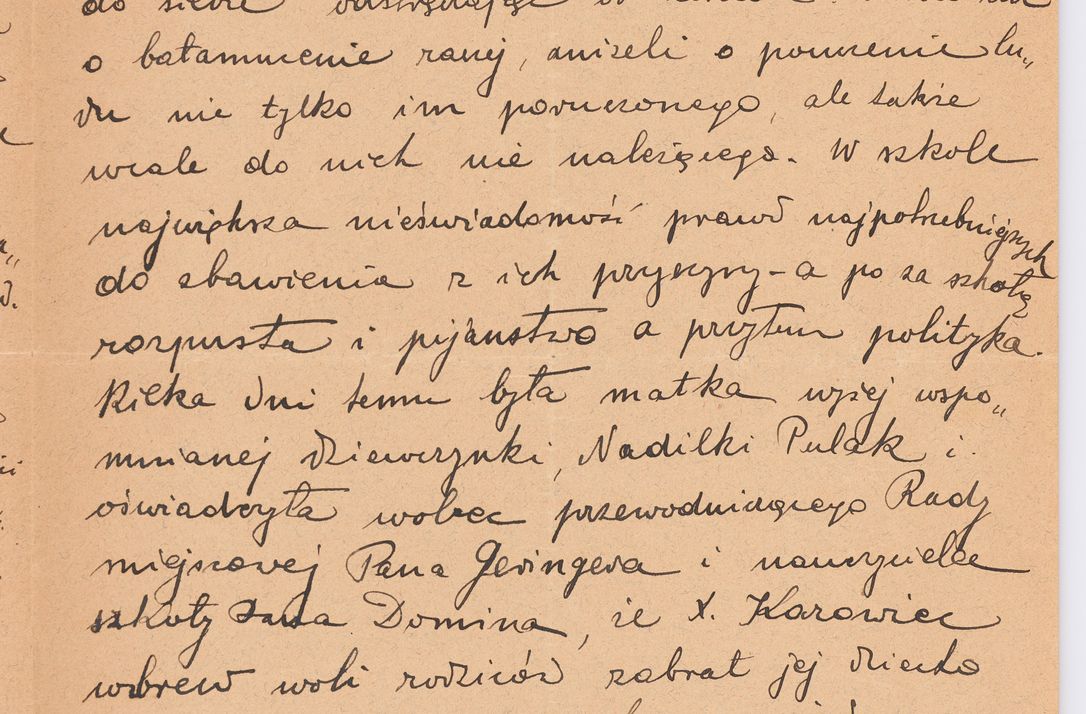 do siebie
o bałamucenie raczej, aniżeli o pouczenie lu„
du nie tylko im poruczonego, ale także
wcale do nich nie należącego. W szkole
największa nieświadomość prawd najpotrzebniejszych
do zbawienia z ich przyczyny – a po za szkołą
rozpusta i pijaństwo a przytem polityka.
Kilka dni temu była matka wyżej wspo„
mnianej dziewczynki, Nadilki Pulak i
oświadczyła wobec przewodniczącego Rady
miejscowej Pana Geringera i nauczyciela
szkoły Jana Domina, że X. Karowiec
wbrew woli rodziców zabrał jej dziecko